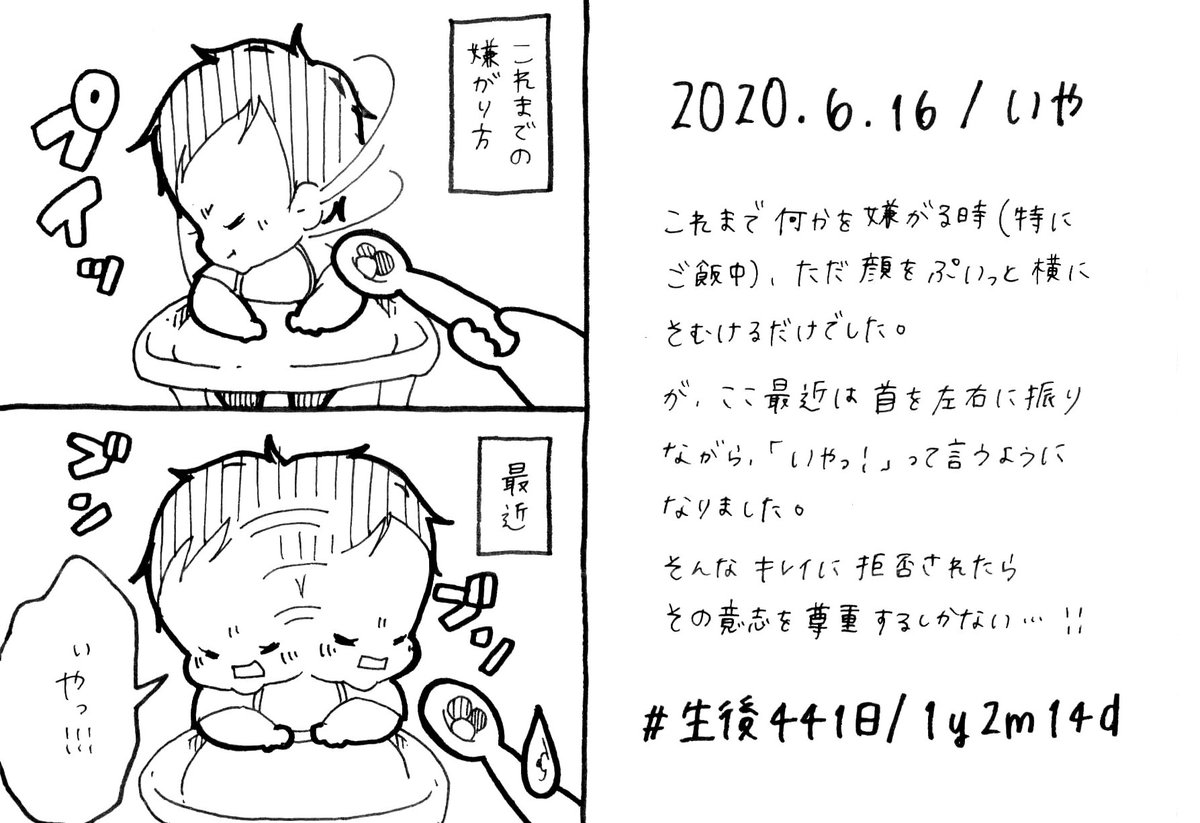 これまでの
嫌がり方
プイッ
最近
ブン
ブン
いやっ!!!
2020.6.16/いや
これまで何かを嫌がる時(特に
ご飯中)、ただ顔をぷいっと横に
そむけるだけでした。
が、ここ最近は首を左右に振り
ながら、「いやっ!」って言うように
なりました。
そんなキレイに拒否されたら
その意志を尊重するしかない…!!
#生後441日/1y2m14d